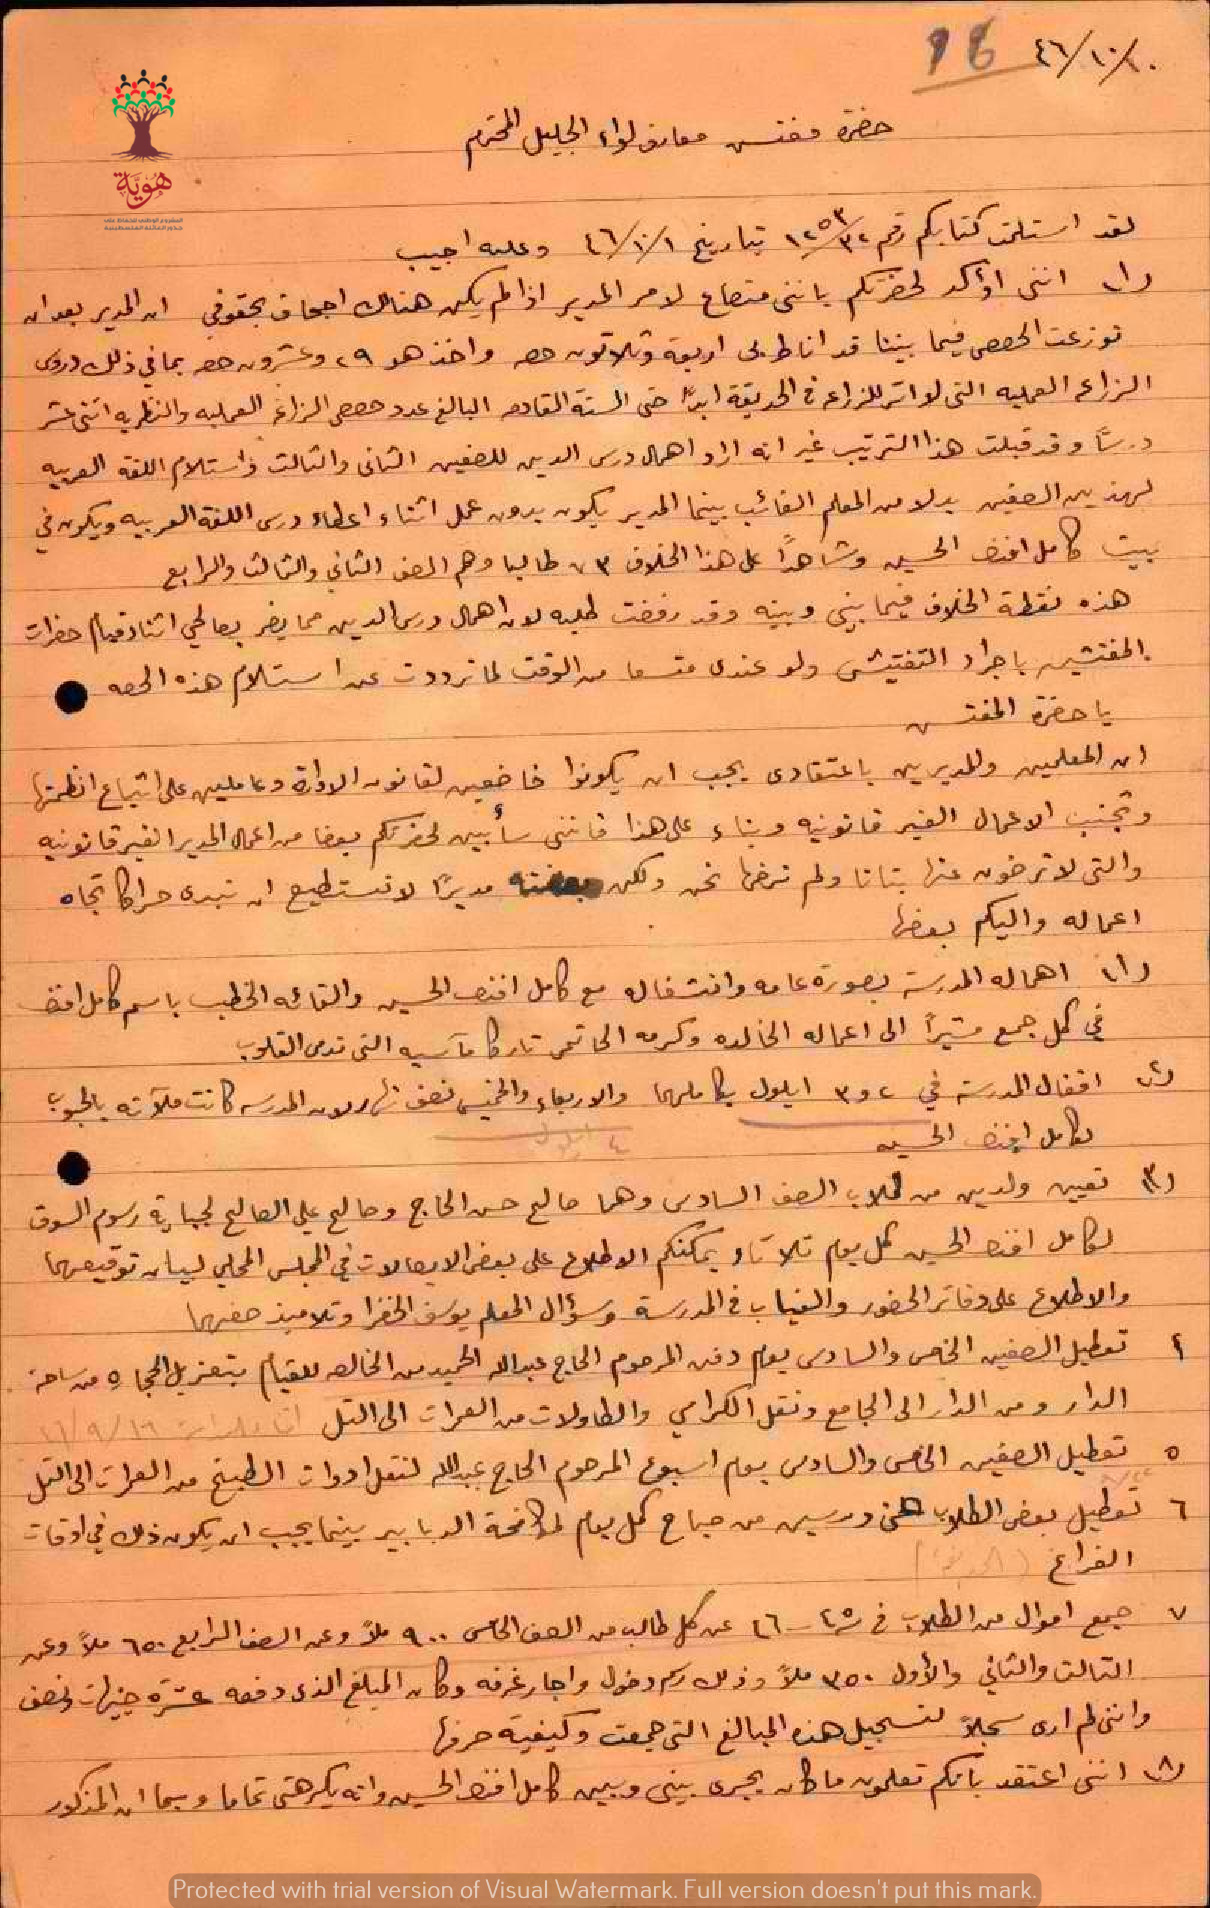 16 ٤٦/١٠/١٠
هُوِيَّة
المشروع الوطني للحفاظ على
جذور العائلة الفلسطينية
حضرة مفتش معارف لواء الجليل المحترم
لقد استلمت كتابكم رقم ١٢٥٣/٣٢ بتاريخ ٤٦/١٠/١ وعليه اجيب
(١) انني اؤكد لحضرتكم بانني منصاع لامر المدير اذا لم يكن هنالك اجحاف بحقوقي ان المدير بعد ان
توزعت الحصص فيما بيننا قد اناط بي اربعة وثلاثون حصه واخذ هو ٢٩ وعشرون حصه بما في ذلك دروس
الزراعه العمليه التي لا اثر للزراعه في الحديقة ابدًا حتى السنة القادمه البالغ عدد حصص الزراعه العمليه والنظريه اثني عشر
درسًا وقد قبلت هذا الترتيب غير انه اراد اهمال درس الدين للصفين الثاني والثالث واستلام اللغة العربيه
لهذين الصفين بدلا من المعلم الغائب بينما المدير يكون بدون عمل اثناء اعطاء درس اللغة العربيه ويكون في
بيت كامل افندي الحسين وشاهدًا على هذا الخلاف ٧٣ طالبا وهم الصف الثاني والثالث والرابع
هذه نقطة الخلاف فيما بيني وبينه وقد رفضت طلبه لان اهمال درس الدين مما يضر بصالحي اثناء قيام حضرات
المفتشين باجراء التفتيش ولو عندي متسعا من الوقت لما ترددت عن استلام هذه الحصه
يا حضرة المفتش
ان المعلمين والمديرين باعتقادي يجب ان يكونوا خاضعين لقانون الادارة وعاملين على اتباع انظمتها
وتجنب الاعمال الغير قانونيه وبناء على هذا فانني سأبين لحضرتكم بعضا من اعمال المدير الغير قانونيه
والتي لا ترضون عنها بتاتا ولم نرضها نحن ولكن بصفته مديرًا لا نستطيع ان نبدي حراكا تجاه
اعماله واليكم بعضها
(١) اهماله المدرسة بصورة عامه وانشغاله مع كامل افندي الحسين والقائه الخطب باسم كامل افندي
في كل جمع مشيرًا الى اعماله الخالده وكرمه الحاتمي تاركا مآسيه التي تدمي القلوب
(٢) اقفال المدرسة في ٢ و٣ ايلول بكاملهما والاربعاء والخميس نصف نهار لان المدرسه كانت ملآنه بالحبوب
لكامل افندي الحسين ٤ ايلول
(٣) تعيين ولدين من طلاب الصف السادس وهما صالح حسن الحاج وصالح علي الصالح لجباية رسوم السوق
لكامل افندي الحسين كل يوم ثلاثاء ويمكنكم الاطلاع على بعض الايصالات في المجلس المحلي لبيان توقيعهما
والاطلاع على دفاتر الحضور والغياب في المدرسة وسؤال المعلم يوسف الخضرا وتلاميذ صفهما
٤ تعطيل الصفين الخامس والسادس يوم دفن المرحوم الحاج عبدالله الحميد من الخالصه للقيام بتعزيل الحجاره من ساحة
الدار ومن الدار الى الجامع ونقل الكراسي والطاولات من العرات الى التل
٥ تعطيل الصفين الخامس والسادس يوم اسبوع المرحوم الحاج عبدالله لنقل ادوات الطبخ من العرات الى التل
٦ تعطيل بعض الطلاب درسين من صباح كل يوم لمكافحة الدبابير بينما يجب ان يكون ذلك في اوقات
الفراغ
٧ جمع اموال من الطلاب في ٤٥ - ٤٦ عن كل طالب من الصف الخامس ٩٠٠ ملاً وعن الصف الرابع ٦٥٠ ملاً وعن
الثالث والثاني والأول ٣٥٠ ملاً وذلك رسم دخول واجار غرفه وكان المبلغ الذي دفعه عشرة جنيهات ونصف
وانني لم ارى سجلاً لتسجيل هذه المبالغ التي جمعت وكيفية صرفها
(٨) انني اعتقد بانكم تعلمون ما كان يجري بيني وبين كامل افندي الحسين وانه يكرهني تماما وبما ان المذكور
Protected with trial version of Visual Watermark. Full version doesn't put this mark.